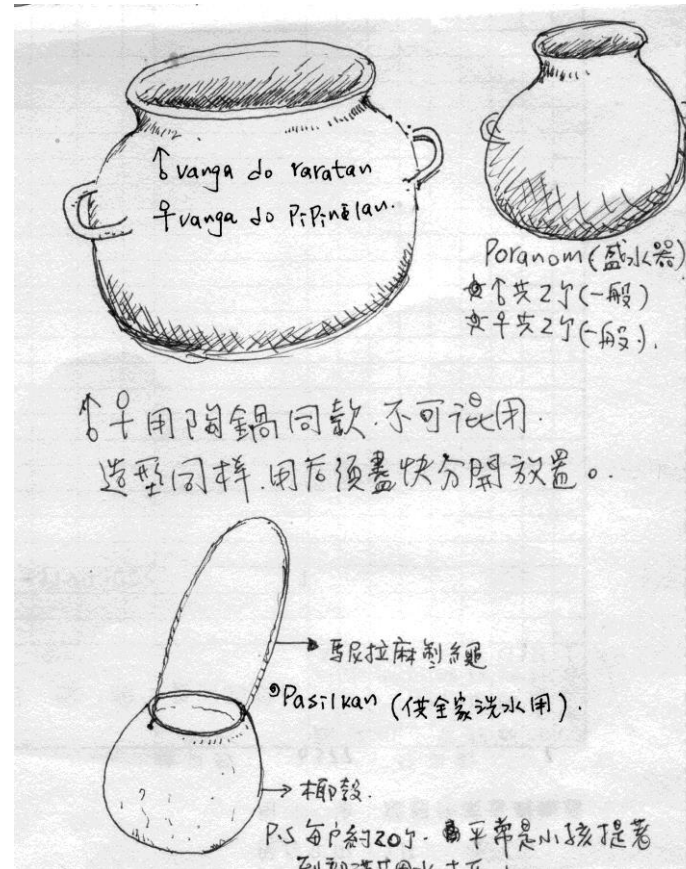 ♂vanga do raratan
♀vanga do PiPinēlan.
Poranom (盛水器)
♂共2个(一般)
♀共2个(一般).
♂♀用陶鍋同款.不可混用.
造型同样.用后須盡快分開放置。
→馬尼拉麻製繩
Pasilkan (供全家洗水用).
→椰殼.
P.S 每户約20个. 平常是小孩提著